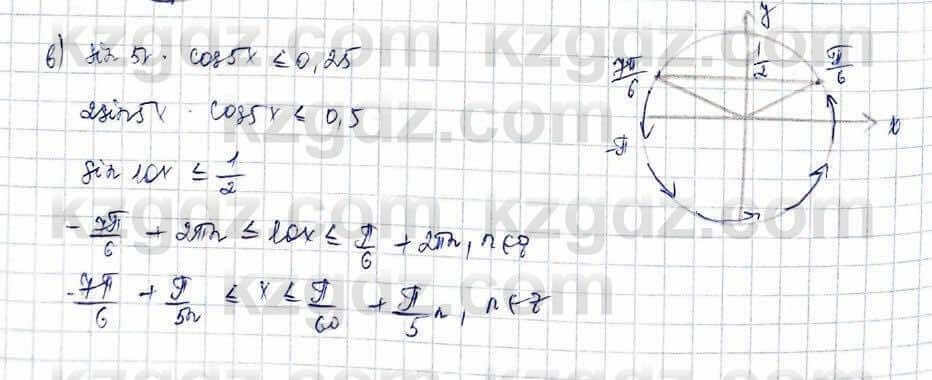 в) sin 5x · cos 5x ≤ 0,25
2sin5x · cos5x ≤ 0,5
sin 10x ≤ 1/2
-7π/6 + 2πn ≤ 10x ≤ π/6 + 2πn, n∈z
-7π/6 + π/5n ≤ x ≤ π/60 + π/5 n, n∈z
y
7π/6
1/2
π/6
x
-π
kzgdz.com